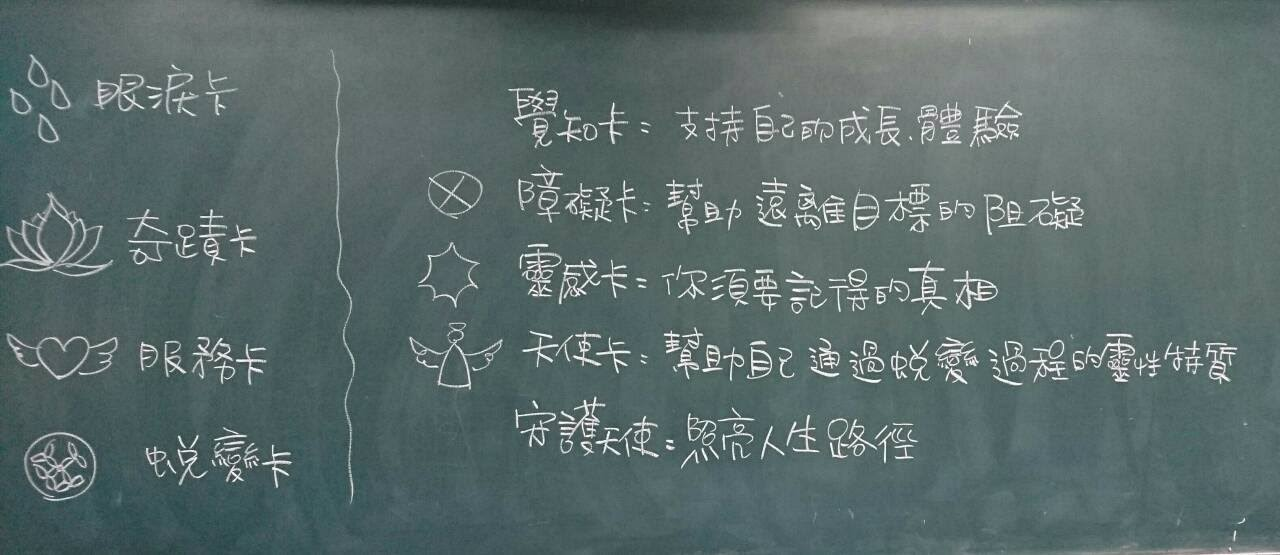 眼淚卡
奇蹟卡
服務卡
蛻變卡
覺知卡：支持自己的成長、體驗
障礙卡：幫助遠離目標的阻礙
靈感卡：你須要記得的真相
天使卡：幫助自己通過蛻變過程的靈性特質
守護天使：照亮人生路徑